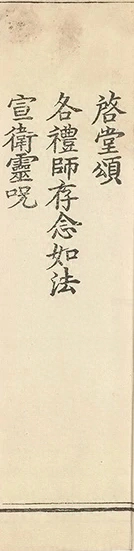 啓堂頌
各禮師存念如法
宣衛靈咒